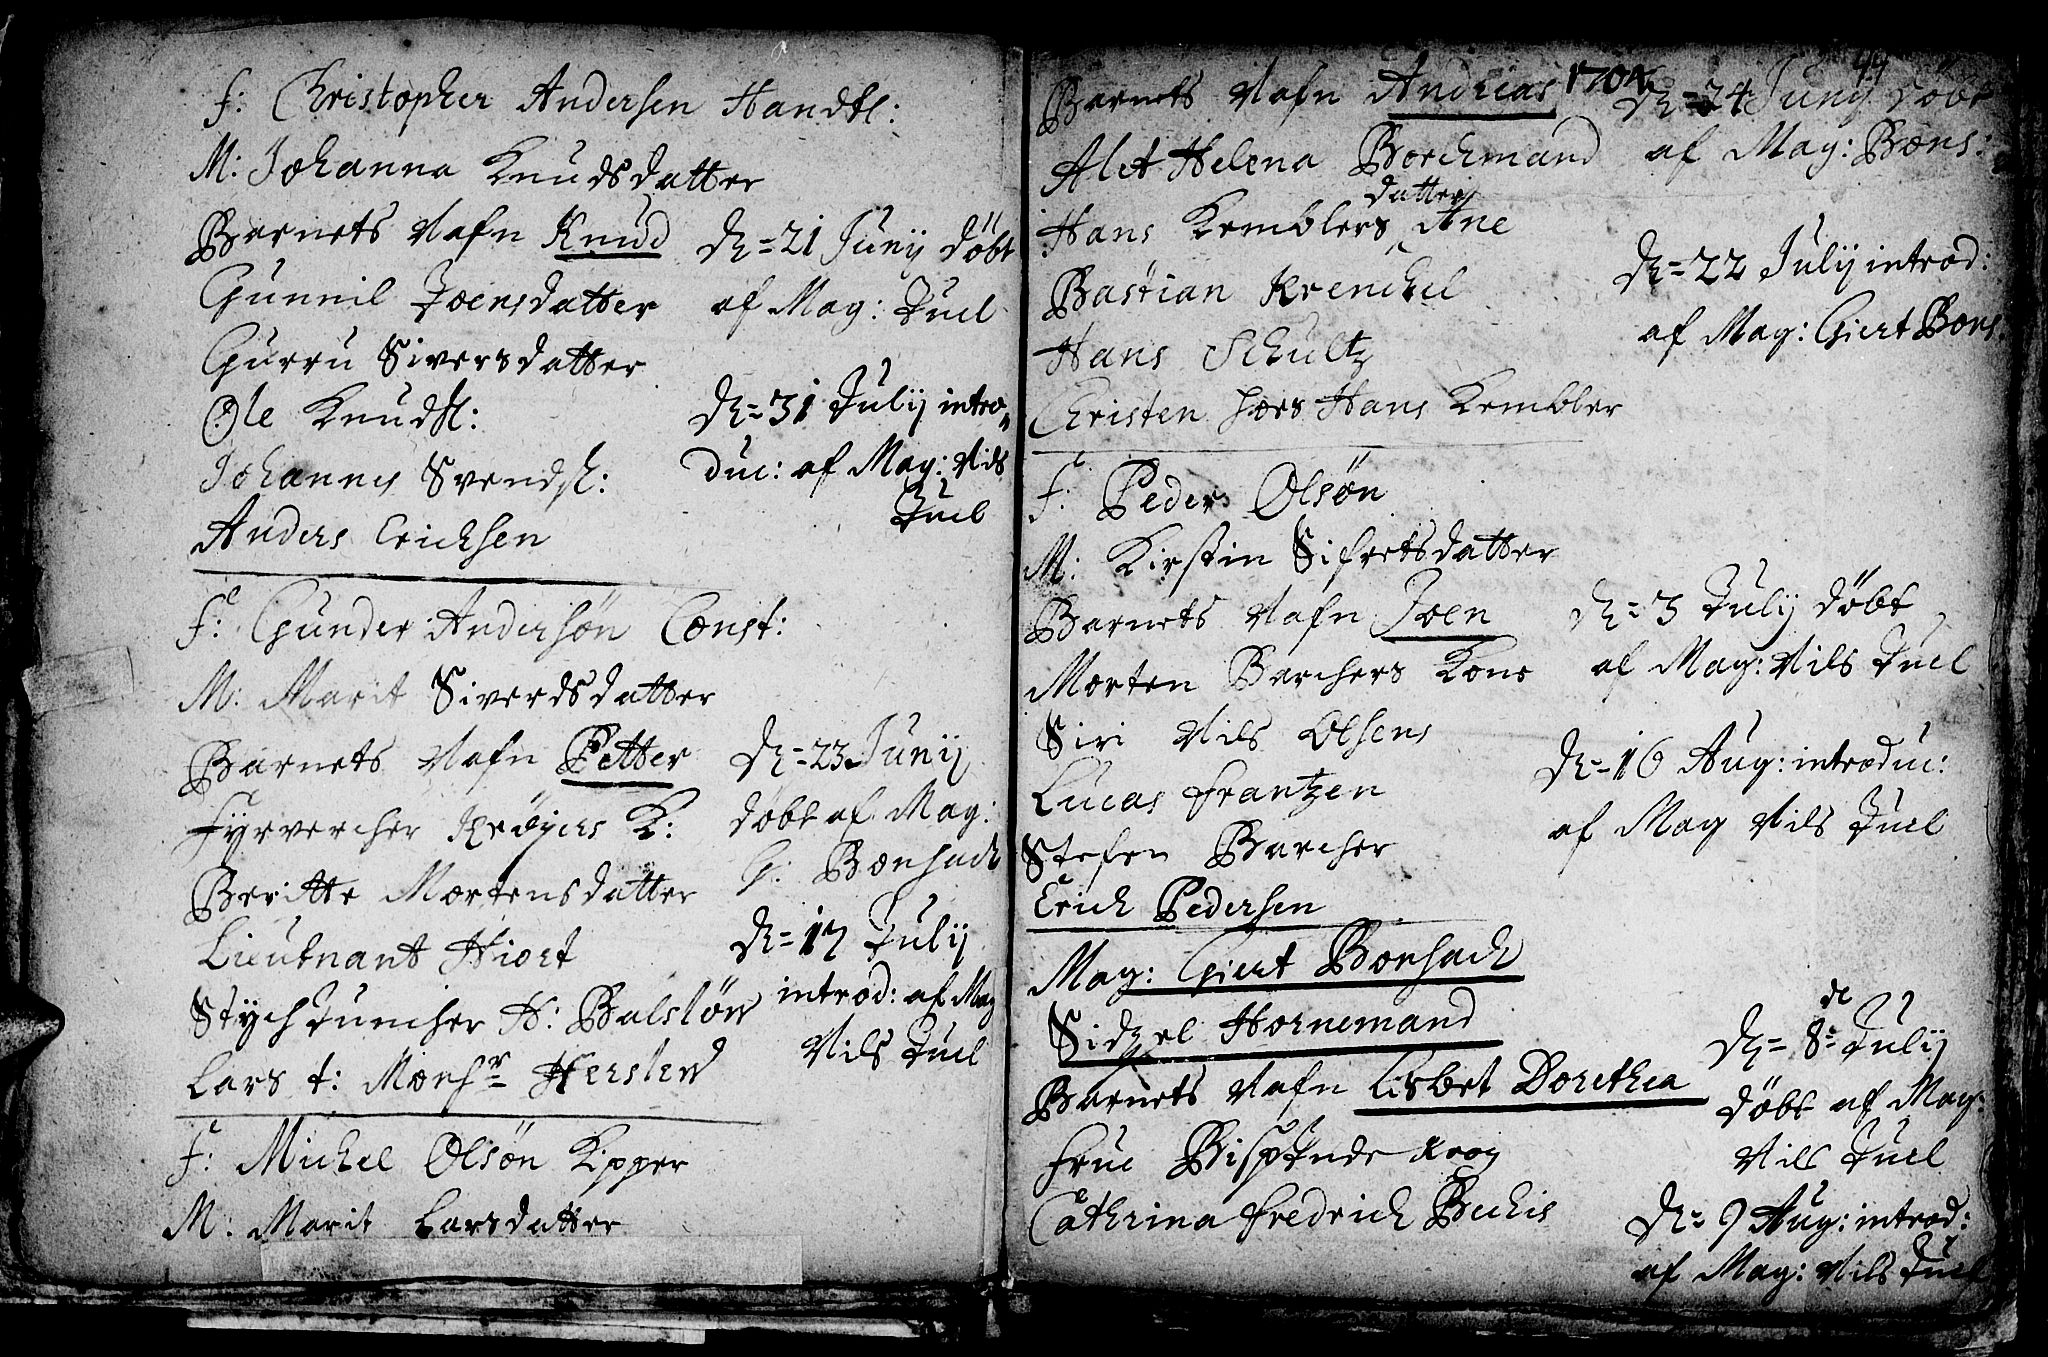 F: Christopher Andersen Handtl:
M: Johanna Knudsdatter
Barnets Nafn Knud
Gunnil Joensdatter
Gurru Siversdatter
Ole Knudsl:
Johannes Svendsl:
Anders Ericksen
d: = 21 Junij döbt
af Mag: Juel
d: = 31 Julij intro„
duc: af Mag: Nils
Juel
F: Gunder Andersön Const:
M: Marit Siverdsdatter
Barnets Nafn Petter
Fyrvercher Krøyers K:
Beritte Mortensdatter
Lieutnant Hiort
Stychjuncher H: Balsløw
Lars t: Monsr Herslew
d: = 23 Junij
döbt af Mag:
G: Bonsach
d: = 17 Julij
introd: af Mag
Nils Juel
F: Michel Olsön Kipper
M: Marit Larsdatter
44
1704
Barnets Nafn Andreas
Alet Helena Borchmand
datter
Hans Kemblers Ane
Bastian Krenckel
Hans Schultz
Christen hors Hans Kembler
d: = 24 Junij döbt
af Mag: Bons:
d: = 22 Julij introd:
af Mag: Giert Bons
F: Peder Olsön
M: Kirstin Sifretsdatter
Barnets Nafn Joen
Morten Barchers Kone
Siri Nils Olsens
Lucas Frantzen
Stefen Barcher
Erich Pedersen
d: = 3 Julij döbt
af Mag: Nils Juel
d: = 16 Aug: introduc:
af Mag Nils Juel
Mag: Giert Bonsach
Sidzel Hornemand
Barnets Nafn Lisbet Dorethea
Frue Bispinde Krog
Cathrina Fredrich Buchis
de
d: = 8 = Julij
döbt af Mag:
Nils Juel
d: = 9 Aug: introd:
af Mag: Nils Juel